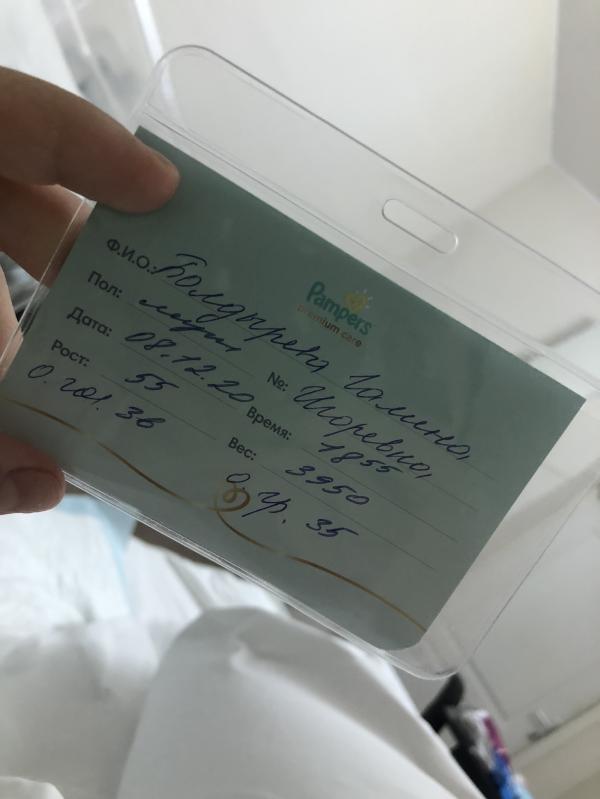 Pampers
premium care
Ф.И.О.: Болдырева Галина,
Игоревна,
Пол: муж №:
Дата: 08.12.20 Время: 1855
Рост: 55 Вес: 3950
О. гол. 36 О. гр. 35